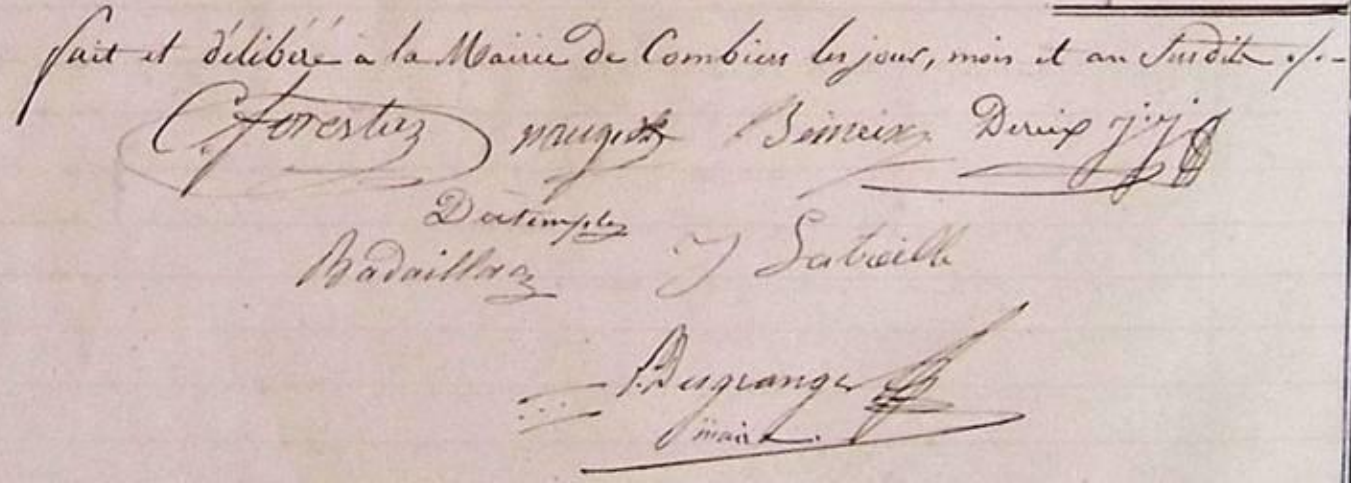 fait et délibéré à la Mairie de Combiers les jour, mois et an susdits ./.-
C. forestas Beineix Dereix j. j.
Datemple
Badaillac J Labrielle
P. Desgranges
maire